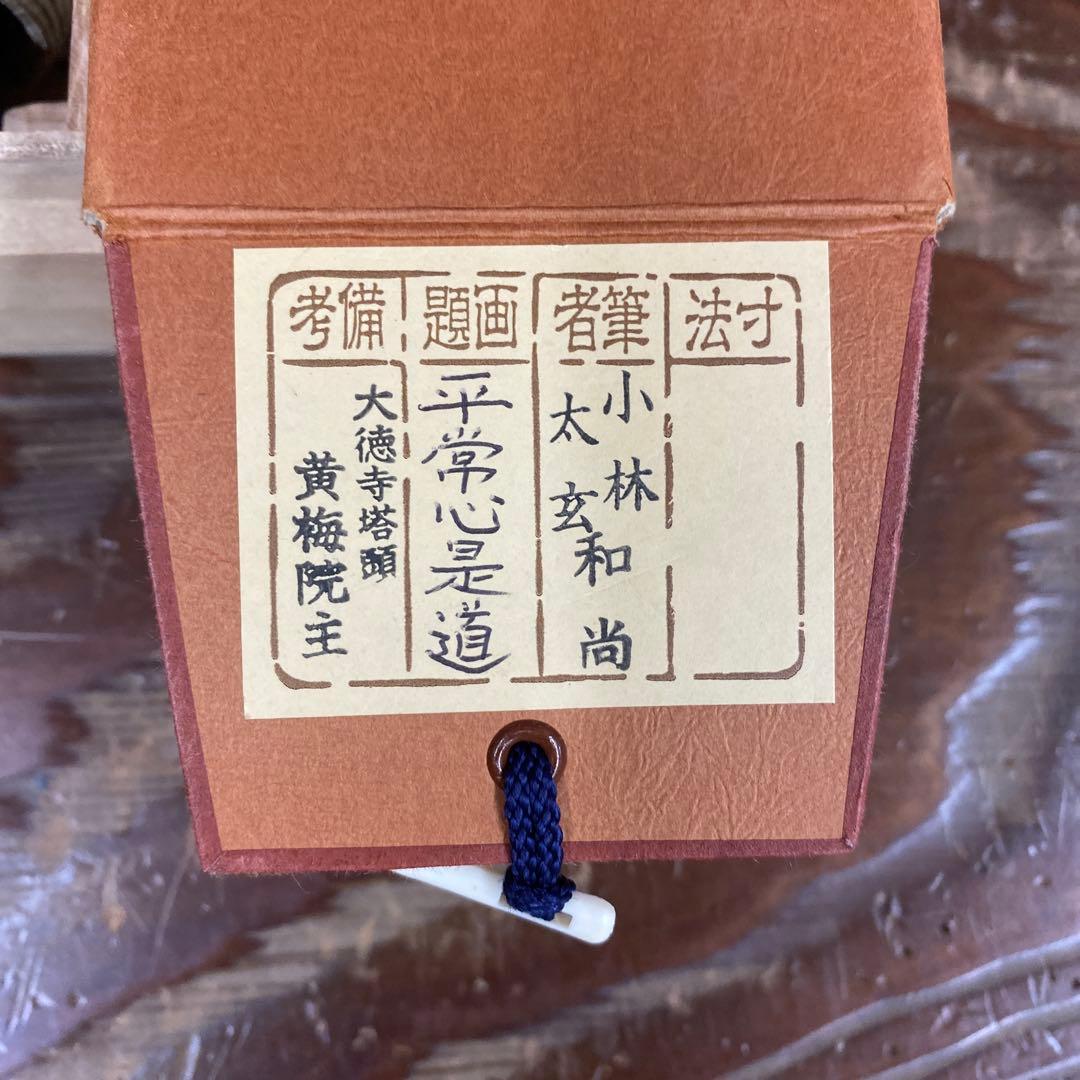 寸法
筆者
小林太玄和尚
画題
平常心是道
備考
大徳寺塔頭
黄梅院主